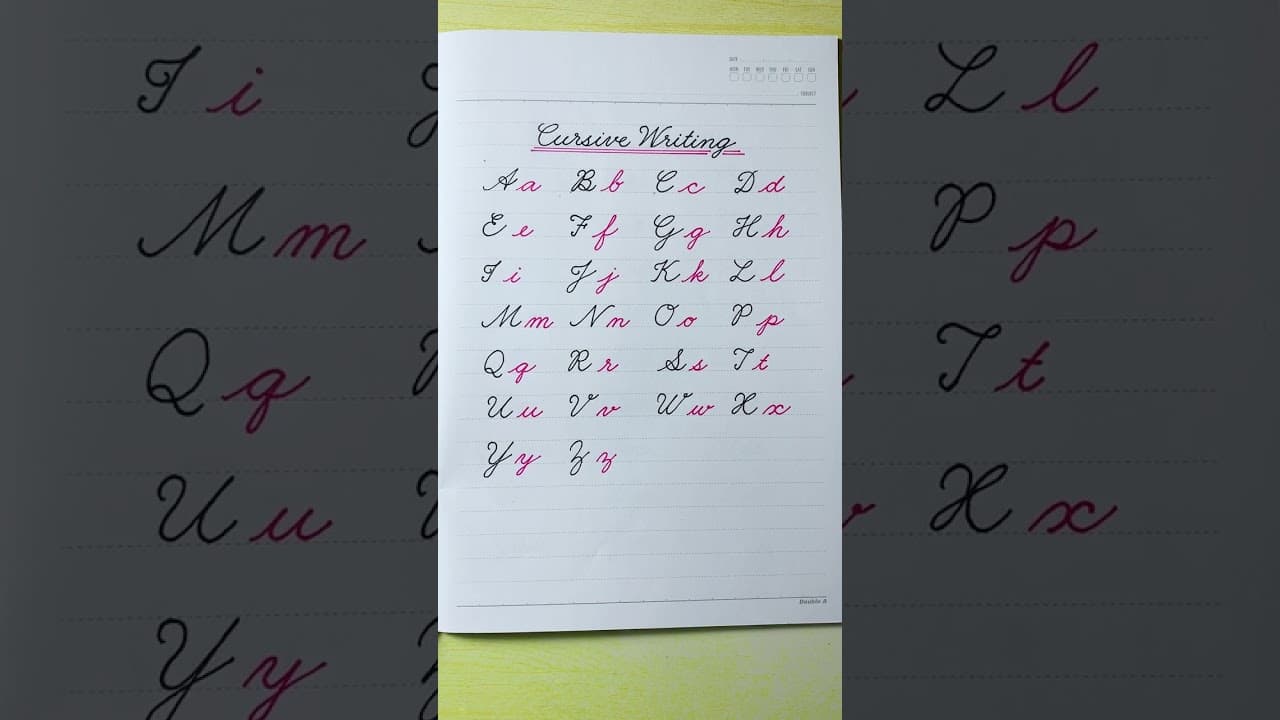 DATE
MON TUE WED THU FRI SAT SUN
SUBJECT
Cursive Writing
A a B b C c D d
E e F f G g H h
I i J j K k L l
M m N n O o P p
Q q R r S s T t
U u V v W w X x
Y y Z z
Double A